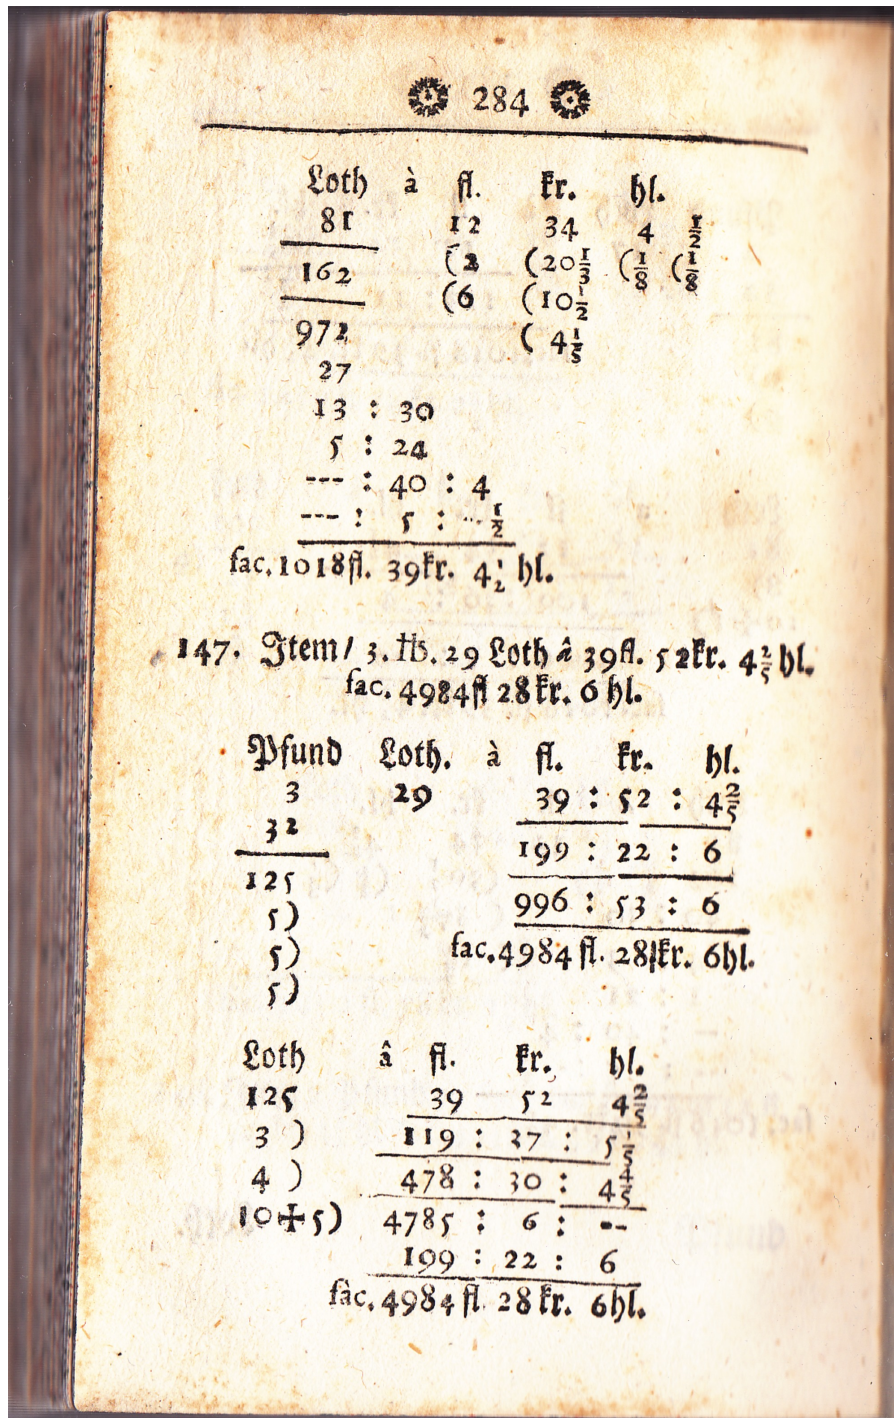 284
Loth à fl. kr. hl.
81 12 34 4 1/2
162 (2 (20 1/3 (1/8 (1/8
(6 (10 1/2
972 ( 4 1/5
27
13 : 30
5 : 24
--- : 40 : 4
--- : 5 : -- 1/2
fac. 1018 fl. 39 kr. 4 1/2 hl.
147. Item / 3. ℔. 29 Loth â 39 fl. 52 kr. 4 2/5 hl.
fac. 4984 fl 28 kr. 6 hl.
Pfund Loth. à fl. kr. hl.
3 29 39 : 52 : 4 2/5
32
199 : 22 : 6
125
996 : 53 : 6
5)
5) fac. 4984 fl. 28 kr. 6 hl.
5)
Loth â fl. kr. hl.
125 39 52 4 2/5
3 ) 119 : 37 : 5 1/5
4 ) 478 : 30 : 4 4/5
10 + 5) 4785 : 6 : --
199 : 22 : 6
fac. 4984 fl. 28 kr. 6 hl.